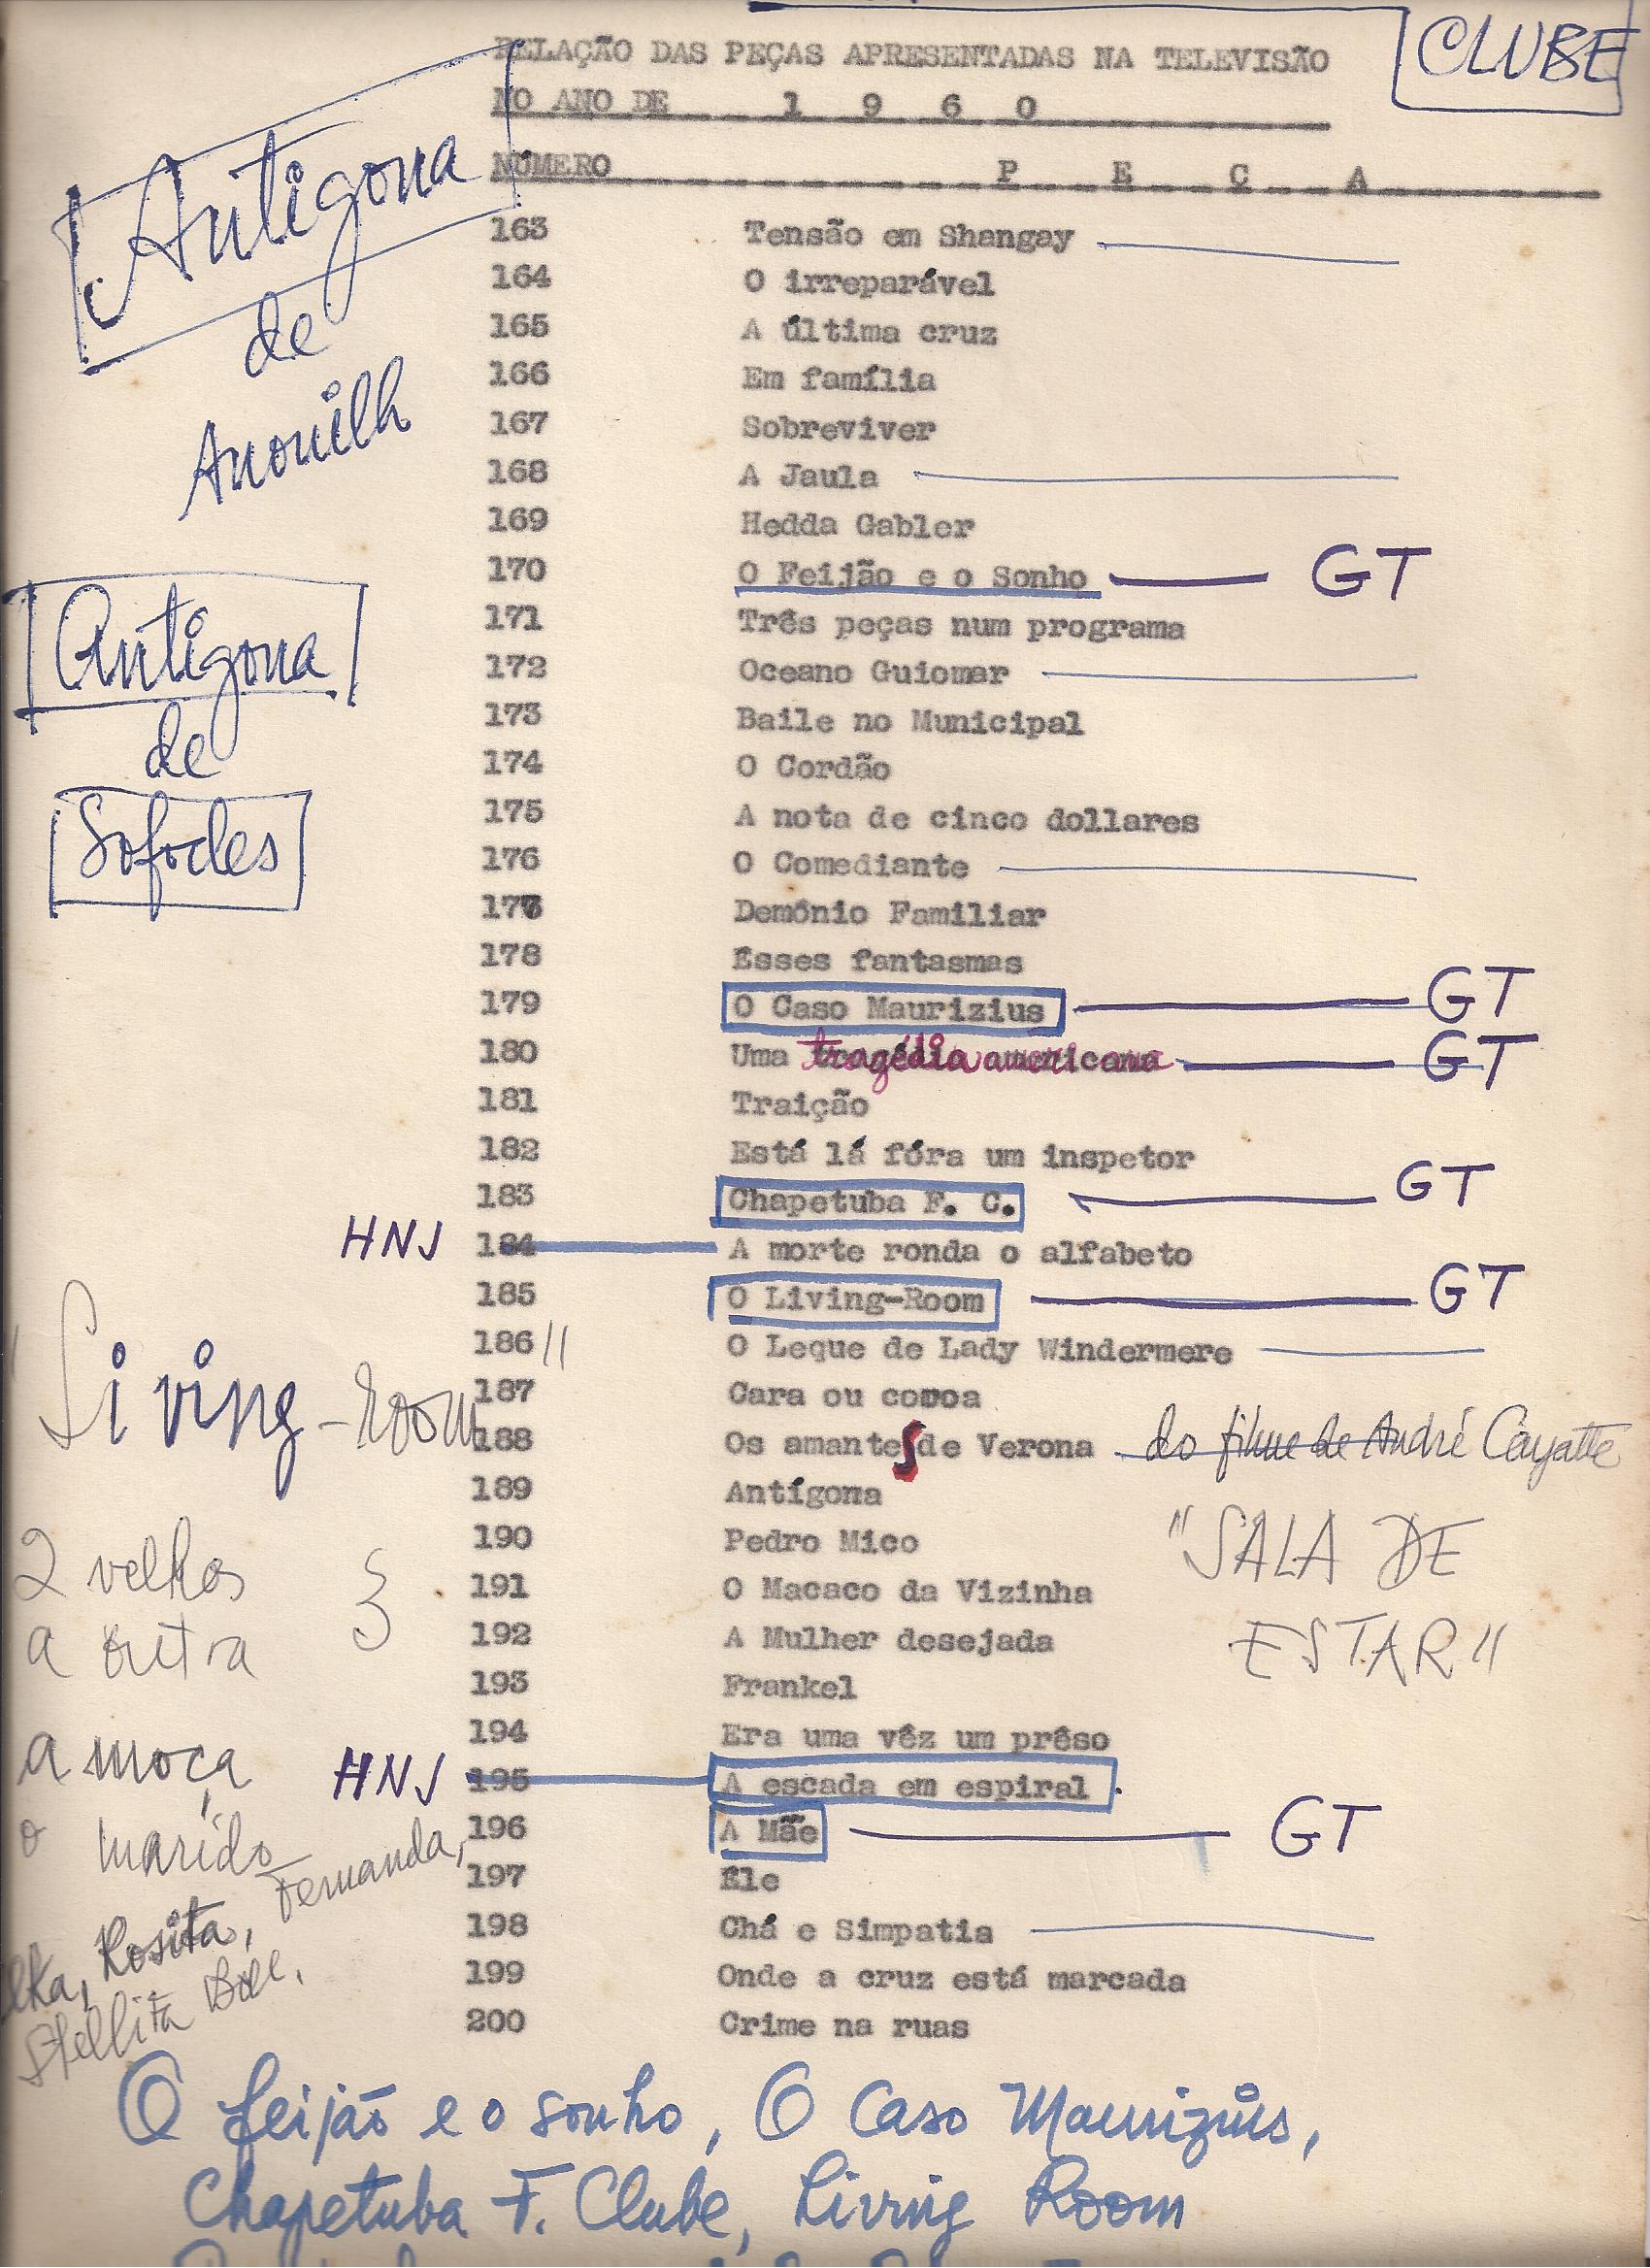 CLUBE
RELAÇÃO DAS PEÇAS APRESENTADAS NA TELEVISÃO
NO ANO DE 1 9 6 0
NÚMERO P E Ç A
Antígona
de
Anouilh
Antígona
de
Sofocles
163 Tensão em Shangay
164 O irreparável
165 A última cruz
166 Em família
167 Sobreviver
168 A Jaula
169 Hedda Gabler
170 O Feijão e o Sonho GT
171 Três peças num programa
172 Oceano Guiomar
173 Baile no Municipal
174 O Cordão
175 A nota de cinco dollares
176 O Comediante
177 Demônio Familiar
178 Êsses fantasmas
179 O Caso Maurizius GT
180 Uma tragédia americana GT
181 Traição
182 Está lá fóra um inspetor
183 Chapetuba F. C. GT
HNJ 184 A morte ronda o alfabeto
185 O Living-Room GT
186 // O Leque de Lady Windermere
187 Cara ou coroa
188 Os amantes de Verona do filme de André Cayatte
189 Antígona
190 Pedro Mico
191 O Macaco da Vizinha
192 A Mulher desejada
193 Frankel
194 Era uma vêz um prêso
HNJ 195 A escada em espiral.
196 A Mãe GT
197 Êle
198 Chá e Simpatia
199 Onde a cruz está marcada
200 Crime na ruas
"Living-room
2 velhos
a outra
a moça
o marido
Fernanda,
Rosita,
Stellita Bell.
"SALA DE
ESTAR"
O feijão e o sonho, O Caso Maurizius,
Chapetuba F. Clube, Living Room